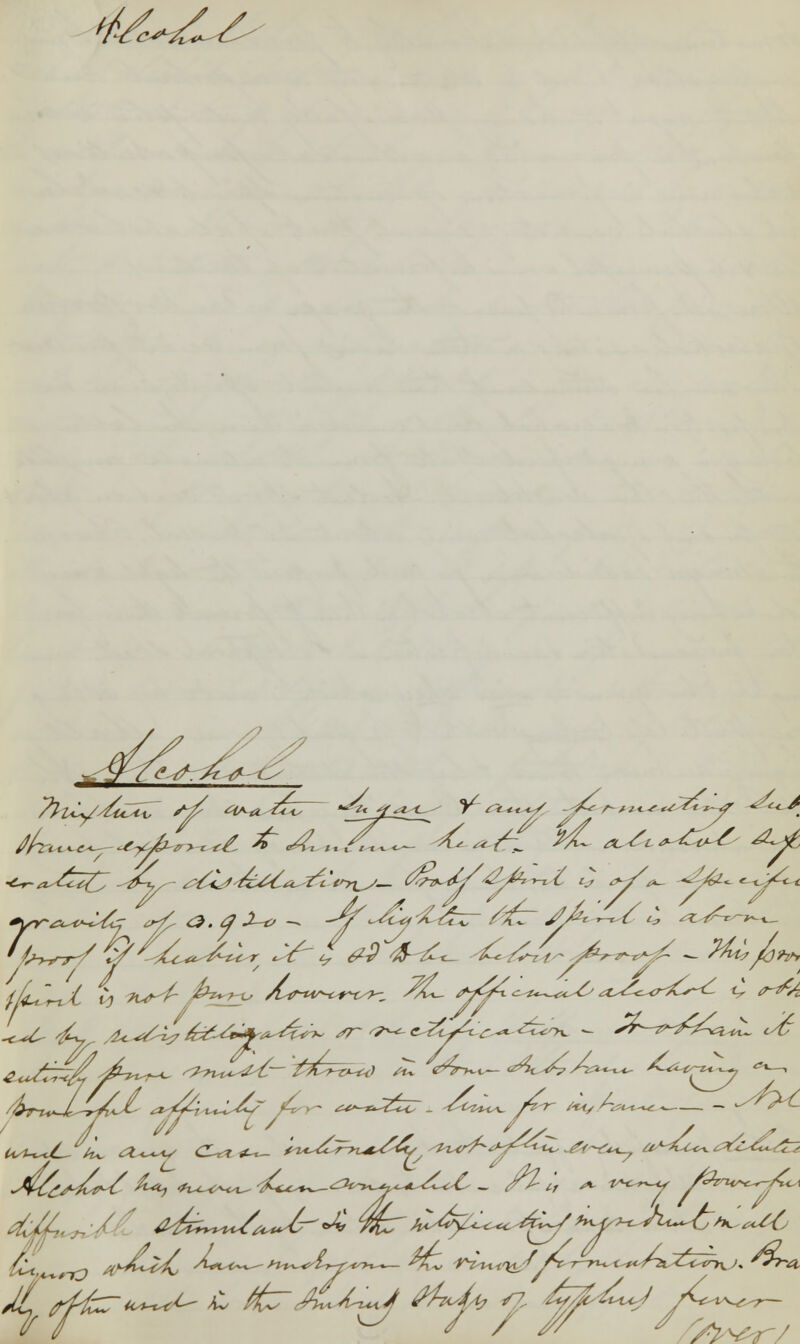 Alcohol
Alcohol
Mixture of water Sugar & any fermenting Sub
stance, exposed to Summer heat. The alcohol Sep
erated by distillation. Proof Spirit is of a Specific
gravity of 0.920 – If lighter the Spirit is above
proof if heavier, it is sd to be below proof – This proof
spirit is not pure however. The officinal alcohol is obt
ed by redistillation or rectification – To obtain it
entirely pure must throw in some substance having a
powerful affinity for water – lime for instance — – Not
used in any case internally, not often even, when dilute
Alcohol has never been congealed – It is a very powerful
diffusible stimulant Is the intoxicating ingredient in all
liquors which have undergone the vinous fermentation. Bra
dy often used in the sinking stage of typhus fever –
(over)